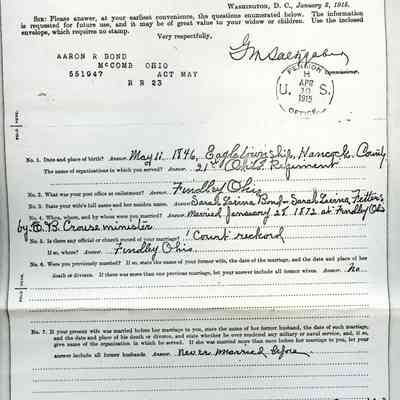 WASHINGTON, D. C., January 2, 1915.
SIR: Please answer, at your earliest convenience, the questions enumerated below. The information
is requested for future use, and it may be of great value to your widow or children. Use the inclosed
envelope, which requires no stamp.
Very respectfully,
AARON R BOND
MCCOMB OHIO
551947 ACT MAY
R R 23
G M Saltzgaber
Commissioner.
PENSION
H
APR
10
1915
U. S.
OFFICE
No. 1. Date and place of birth? Answer. May 11. 1846, Eagle township, Hancock County
The name of organizations in which you served? Answer. 21st Ohio Regiment
No. 2. What was your post office at enlistment? Answer. Findley Ohio
No. 3. State your wife's full name and her maiden name. Answer. Sarah Bond - Sarah Fetters
No. 4. When, where, and by whom were you married? Answer. Married January 28. 1872 at Findley Ohio
by B Crouse minister
No. 5. Is there any official or church record of your marriage? Court reckord
If so, where? Answer. Findley Ohio.
No. 6. Were you previously married? If so, state the name of your former wife, the date of the marriage, and the date and place of her
death or divorce. If there was more than one previous marriage, let your answer include all former wives. Answer. No
No. 7. If your present wife was married before her marriage to you, state the name of her former husband, the date of such marriage,
and the date and place of his death or divorce, and state whether he ever rendered any military or naval service, and, if so,
give name of the organization in which he served. If she was married more than once before her marriage to you, let your
answer include all former husbands. Answer. Never Married before.